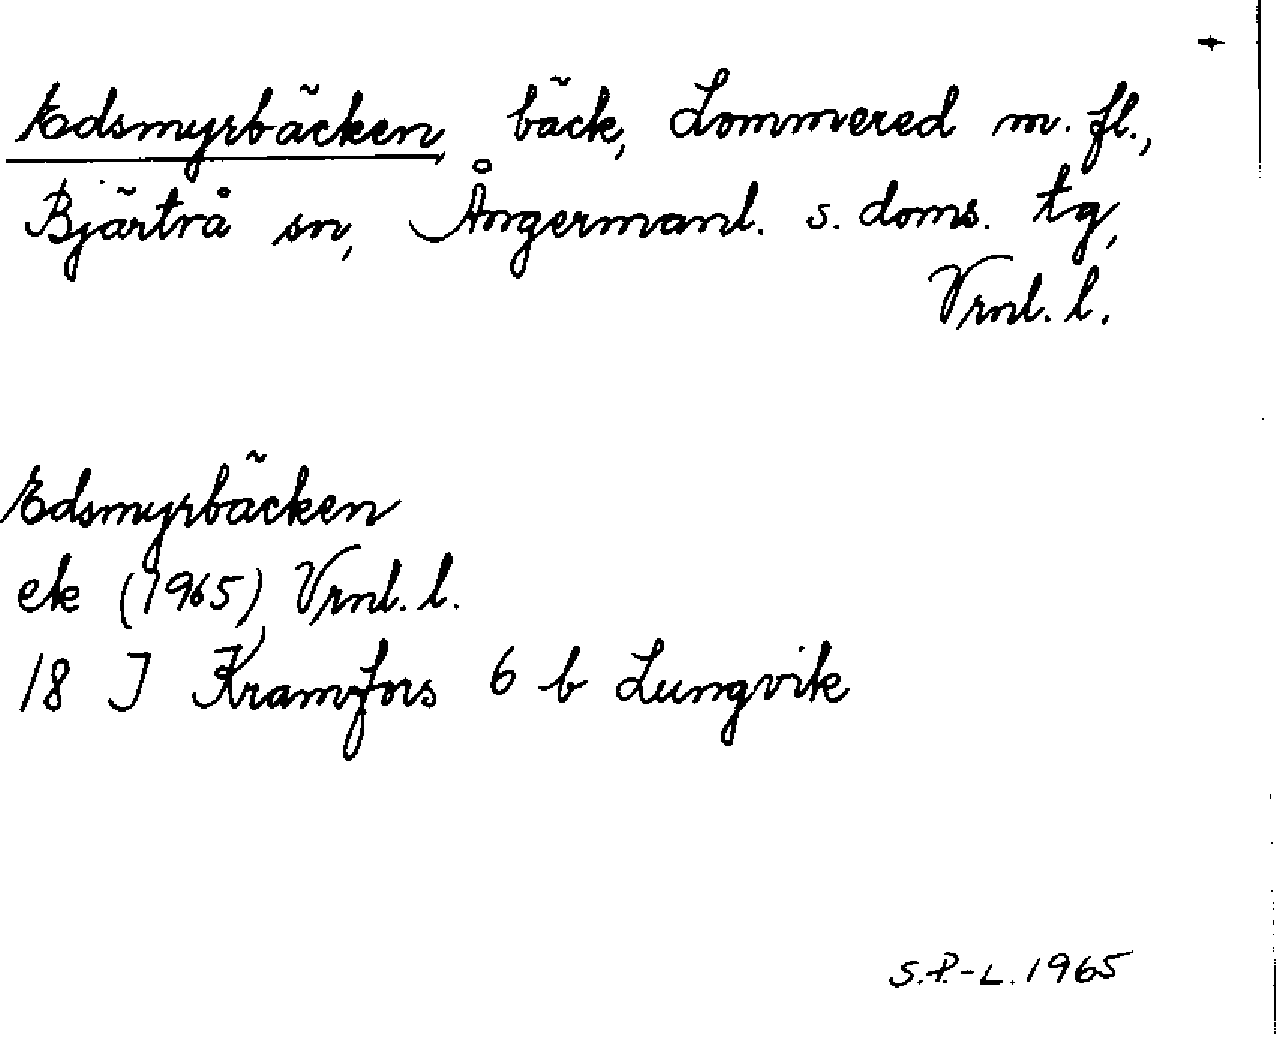 Edsmyrbäcken, bäck, Lommered m. fl.,
Bjärtrå sn, Ångermanl. s. doms. tg,
Vrnl. l.
Edsmyrbäcken
ek (1965), Vrnl. l.
18 J Kramfors 6 b Lungvik
S.P.-L. 1965